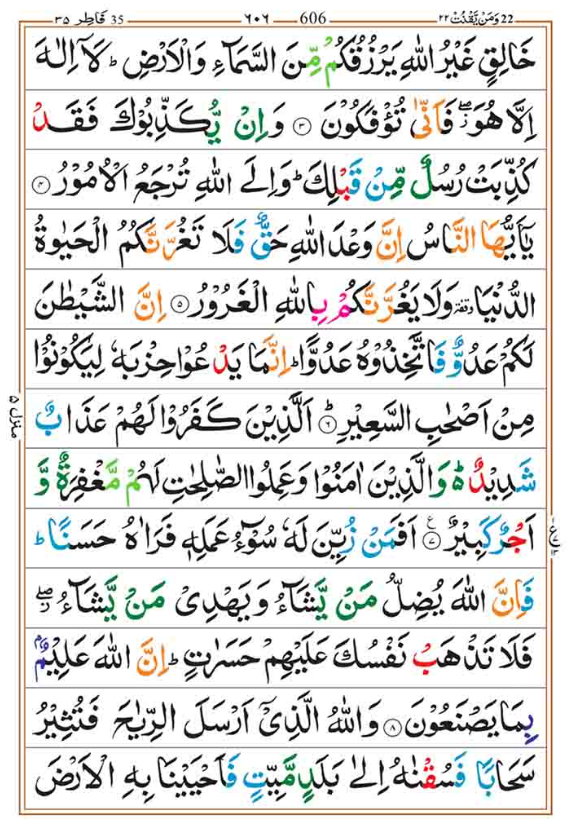 فَاطِر ٣٥ 35 ٦٠٦ 606 وَمَنْ يَّقْنُتْ ٢٢ 22
خَالِقٍ غَيْرُ اللّٰهِ يَرْزُقُكُمْ مِّنَ السَّمَآءِ وَالْاَرْضِ ؕ لَاۤ اِلٰهَ
اِلَّا هُوَ ۖ ؗ فَاَنّٰى تُؤْفَكُوْنَ ۝۳ وَاِنْ يُّكَذِّبُوْكَ فَقَدْ
كُذِّبَتْ رُسُلٌ مِّنْ قَبْلِكَ ؕ وَاِلَى اللّٰهِ تُرْجَعُ الْاُمُوْرُ ۝۴
يٰۤاَيُّهَا النَّاسُ اِنَّ وَعْدَ اللّٰهِ حَقٌّ فَلَا تَغُرَّنَّكُمُ الْحَيٰوةُ
الدُّنْيَا ٝ وَلَا يَغُرَّنَّكُمْ بِاللّٰهِ الْغَرُوْرُ ۝۵ اِنَّ الشَّيْطٰنَ
لَكُمْ عَدُوٌّ فَاتَّخِذُوْهُ عَدُوًّا ؕ اِنَّمَا يَدْعُوْا حِزْبَهٗ لِيَكُوْنُوْا
مِنْ اَصْحٰبِ السَّعِيْرِ ؕ ۝۶ اَلَّذِيْنَ كَفَرُوْا لَهُمْ عَذَابٌ
شَدِيْدٌ ۬ؕ وَالَّذِيْنَ اٰمَنُوْا وَعَمِلُوا الصّٰلِحٰتِ لَهُمْ مَّغْفِرَةٌ وَّ
اَجْرٌ كَبِيْرٌ ۝۷ ع اَفَمَنْ زُيِّنَ لَهٗ سُوْٓءُ عَمَلِهٖ فَرَاٰهُ حَسَنًا ؕ
فَاِنَّ اللّٰهَ يُضِلُّ مَنْ يَّشَآءُ وَيَهْدِيْ مَنْ يَّشَآءُ ۖ
فَلَا تَذْهَبْ نَفْسُكَ عَلَيْهِمْ حَسَرٰتٍ ؕ اِنَّ اللّٰهَ عَلِيْمٌۢ
بِمَا يَصْنَعُوْنَ ۝۸ وَاللّٰهُ الَّذِيْۤ اَرْسَلَ الرِّيٰحَ فَتُثِيْرُ
سَحَابًا فَسُقْنٰهُ اِلٰى بَلَدٍ مَّيِّتٍ فَاَحْيَيْنَا بِهِ الْاَرْضَ
منزل ٥